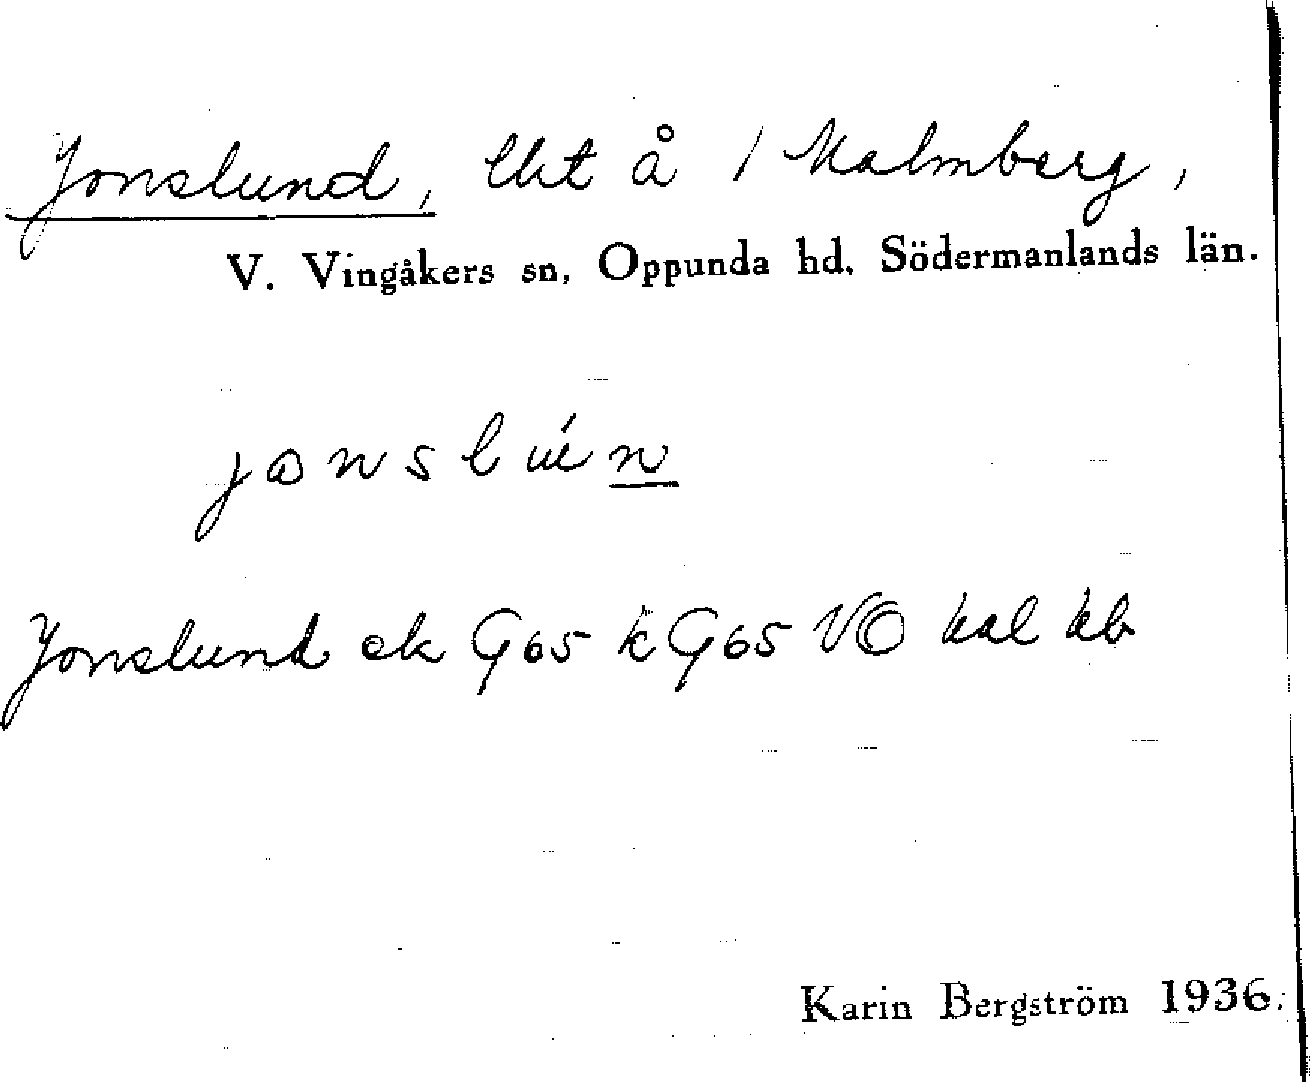 Jonslund, lht å 1 Malmberg,
V. Vingåkers sn, Oppunda hd, Södermanlands län.
jɷnslún
Jonslund ek G65 k G65 VO hal hb
Karin Bergström 1936.